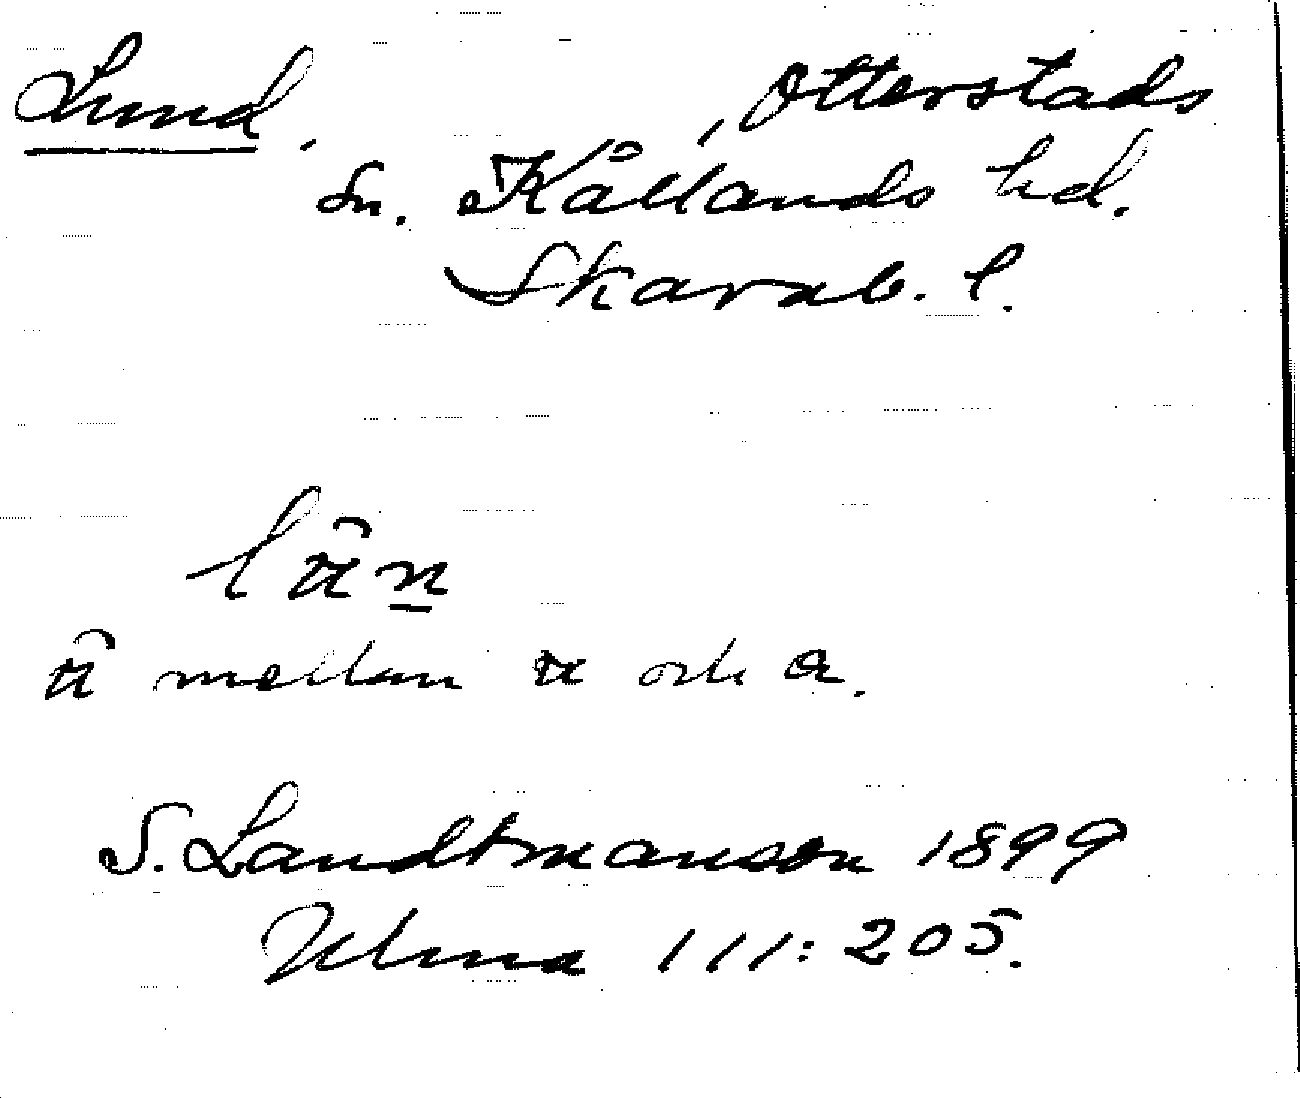 Lund, , Otterstads
sn. Kållands hd.
Skarab. l.
län
ä mellan ä och a.
S. Landtmanson 1899
Ulma 111:205.